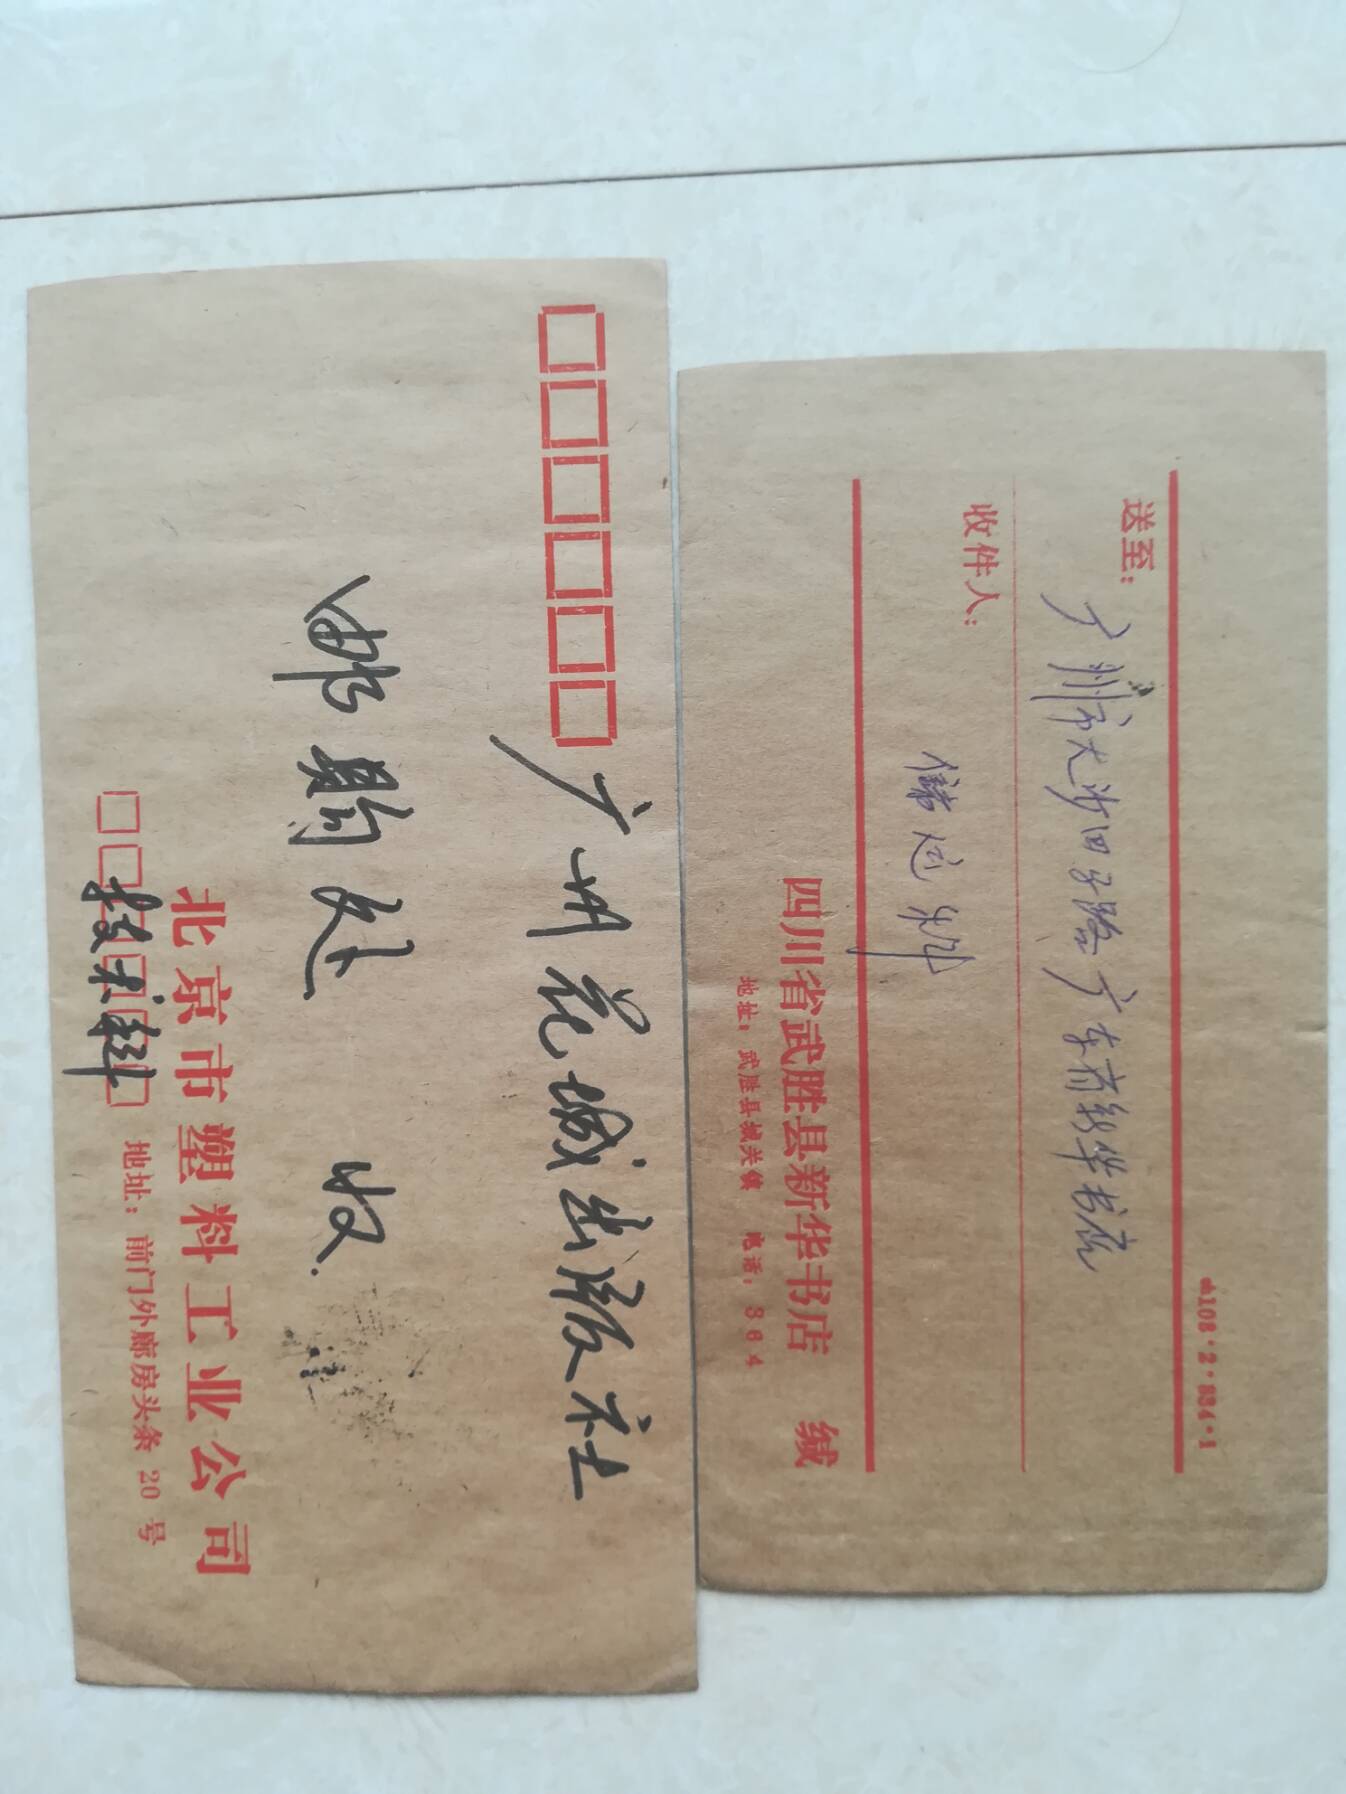 广州花城出版社
邮购处 收
北京市塑料工业公司
技术科
地址：前门外廊房头条 20 号
送至：广州市大沙田马路广东省新华书店
收件人：
储运科
四川省武胜县新华书店 缄
地址：武胜县城关镇 电话：364